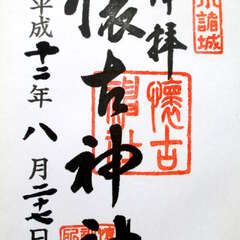 小諸城
奉拝
懐古
神社
懐古神社
平成十二年八月二十七日